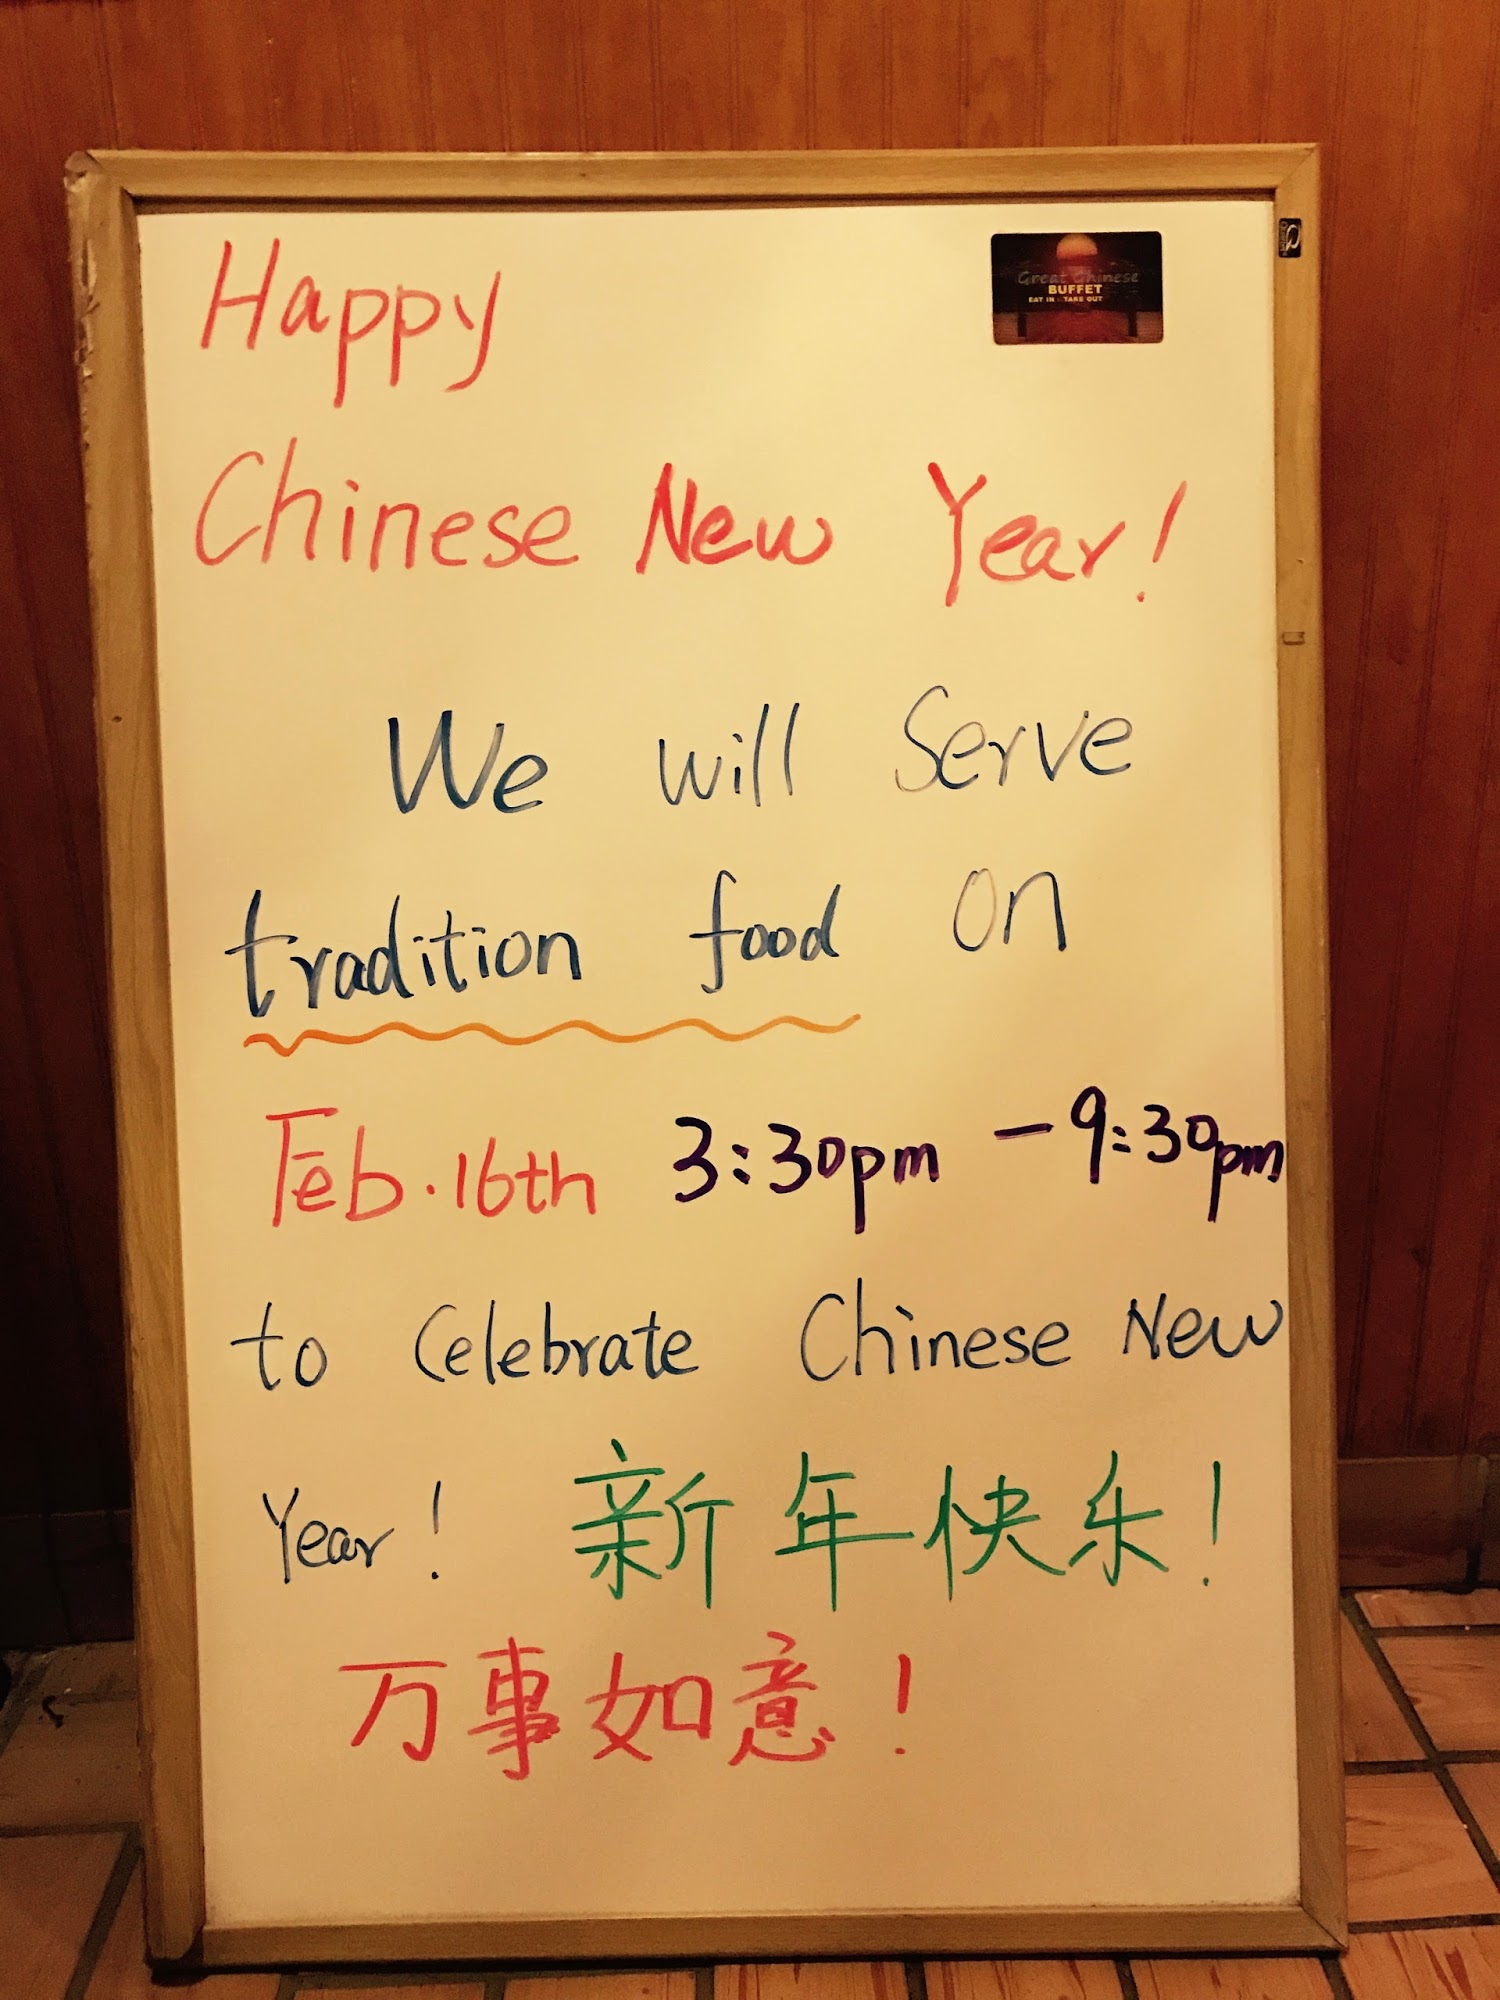 Happy
Great Chinese
BUFFET
EAT IN TAKE OUT
Chinese New Year!
We will Serve
tradition food on
Feb.16th 3:30pm - 9:30pm
to Celebrate Chinese New
Year! 新年快乐!
万事如意!